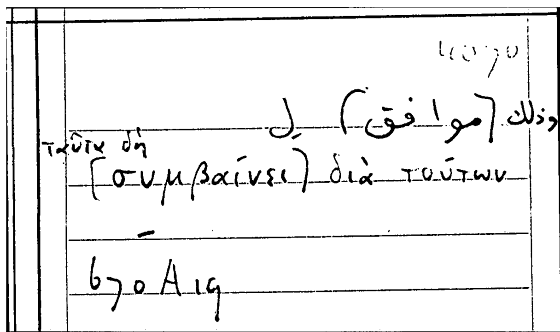 وذلك (موافق) ل
ταῦτα δὴ
(συμβαίνει) διὰ τούτων
670 A 19